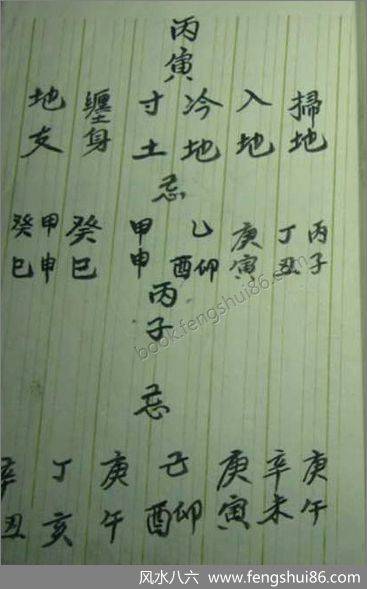 丙寅
掃地
入地
冷地
寸土
纏身
地支
忌
丙子
丁丑
庚寅
乙卯酉
甲申
癸巳
甲申
癸巳
丙子
忌
庚午
辛未
庚寅
己卯酉
庚午
丁亥
辛丑
book.fengshui86.com
风水八六 www.fengshui86.com